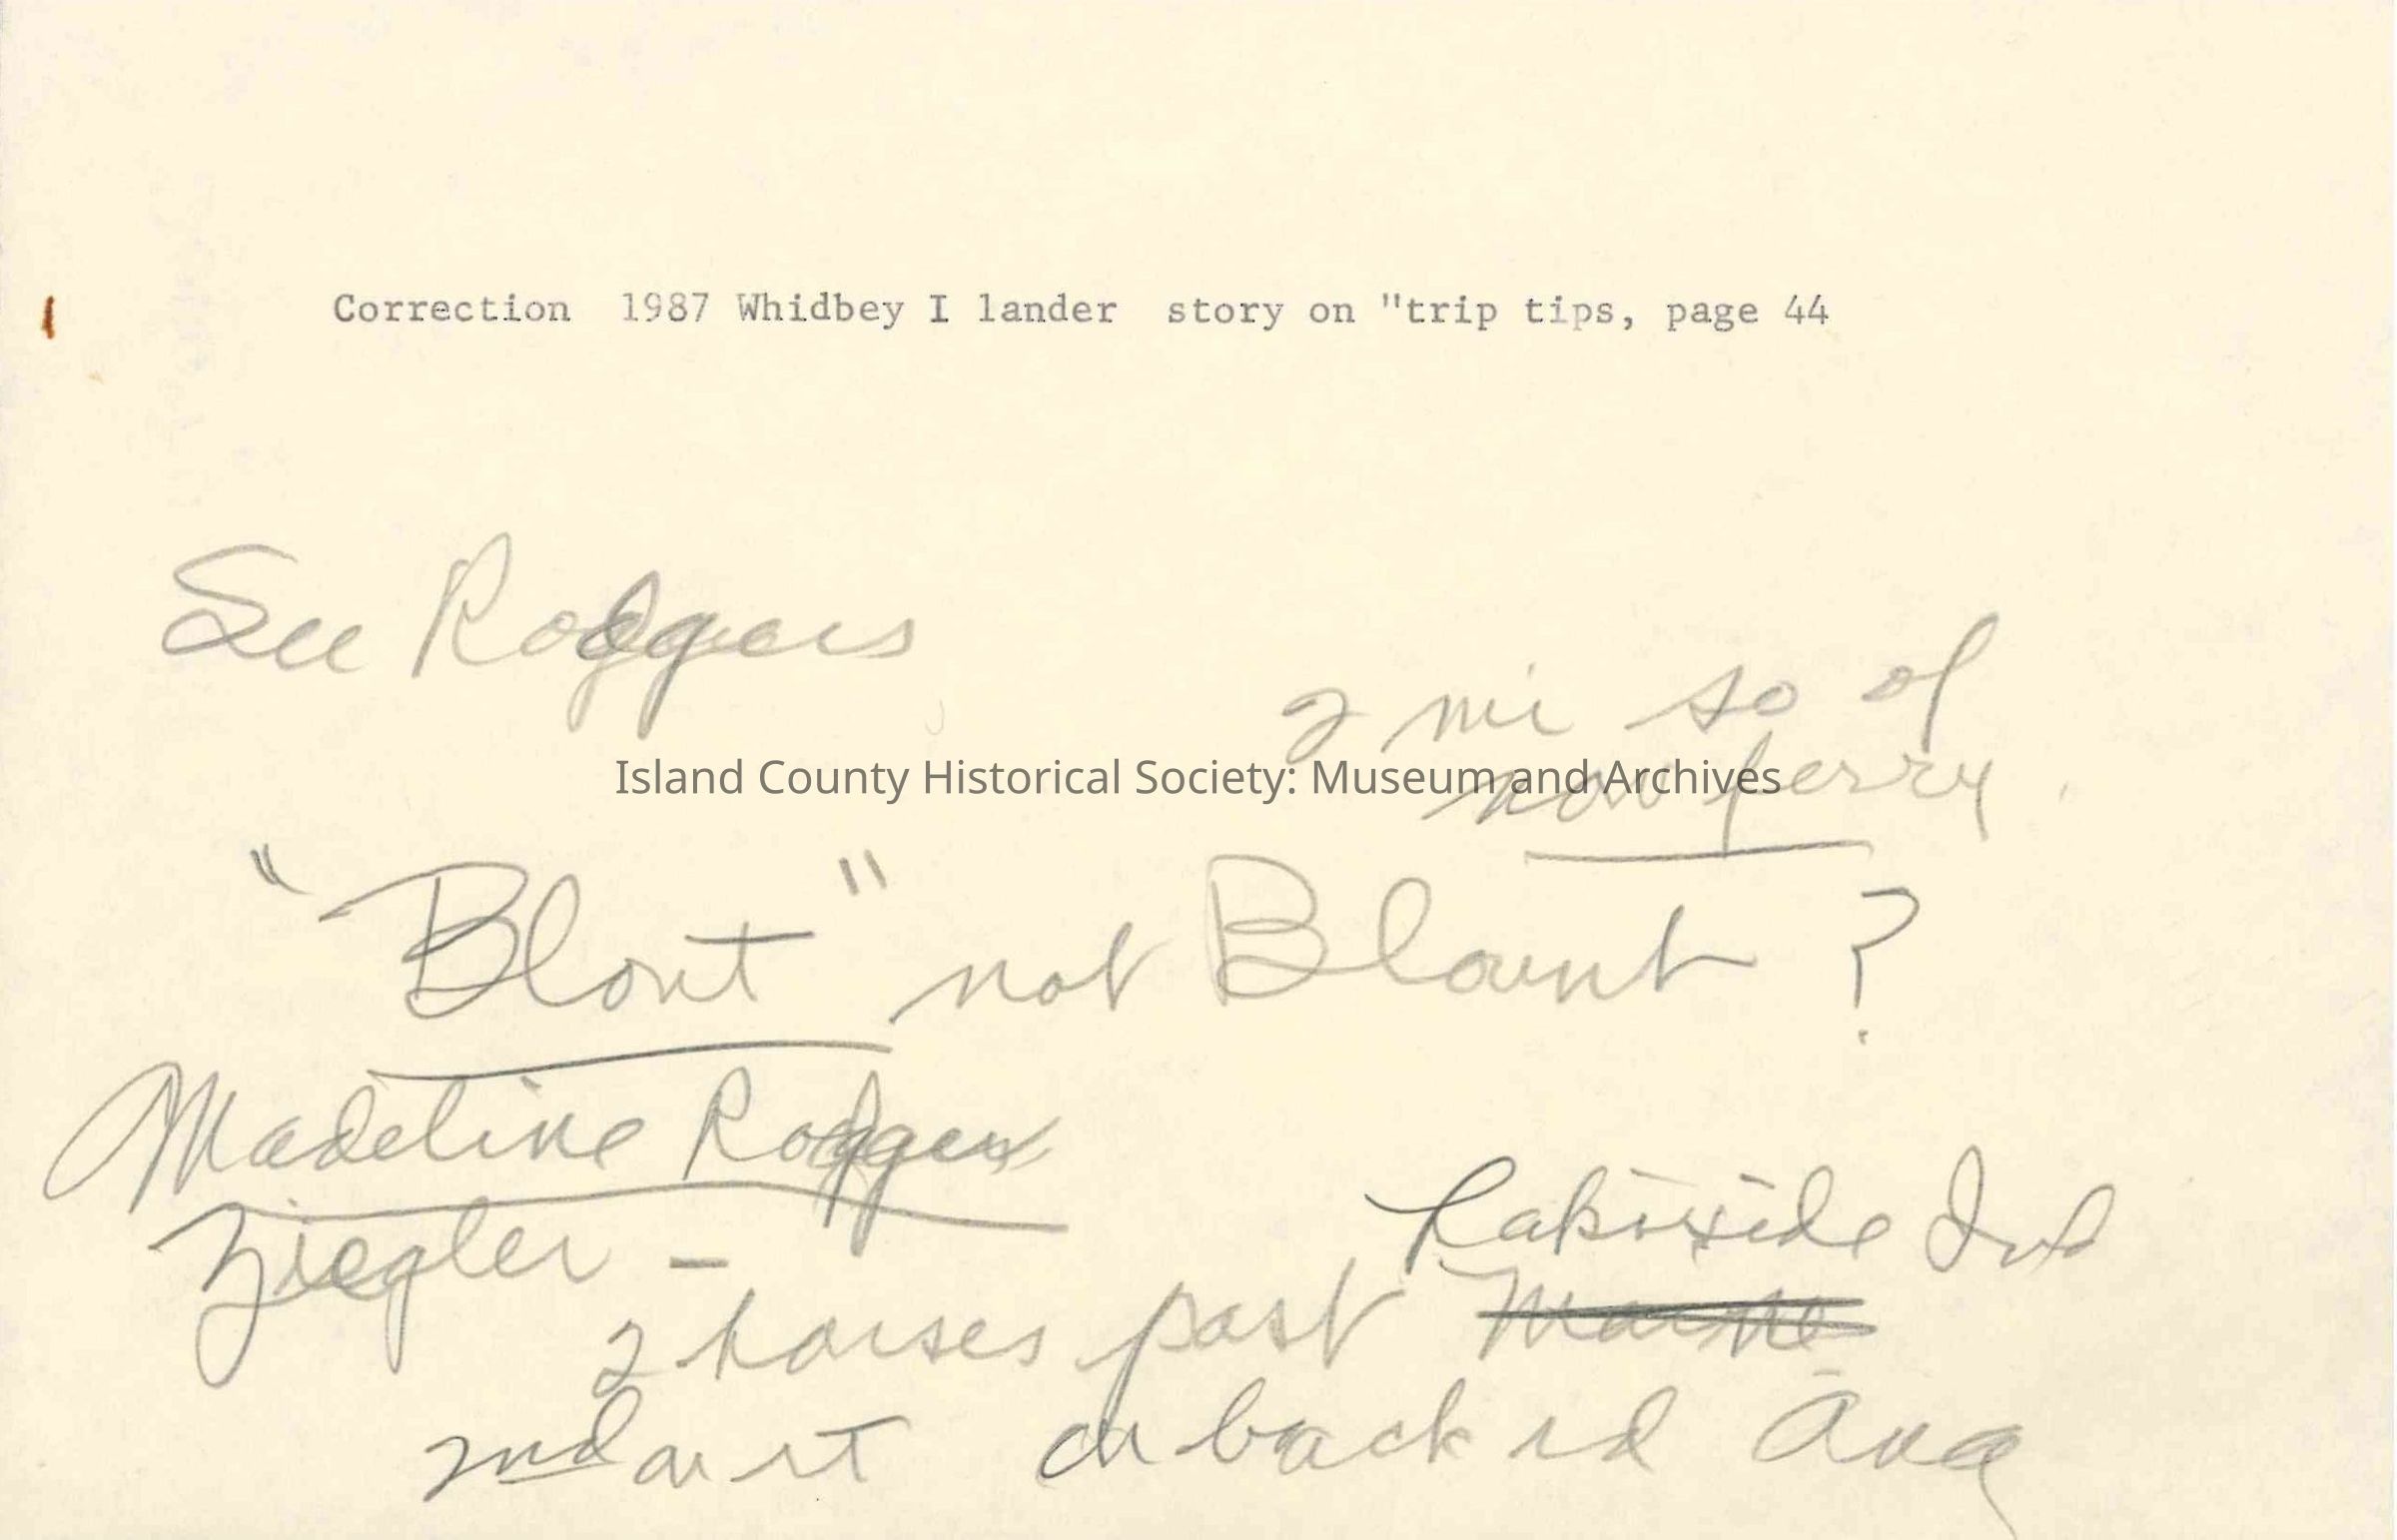 Correction 1987 Whidbey I lander story on "trip tips, page 44
See Rodgers
2 mi so of
now ferry.
Island County Historical Society: Museum and Archives
"Blont" not Blount ?
Madeline Rodgers
Ziegler -
Lakeside Ind
2 houses past
2nd on rt on back rd Ana